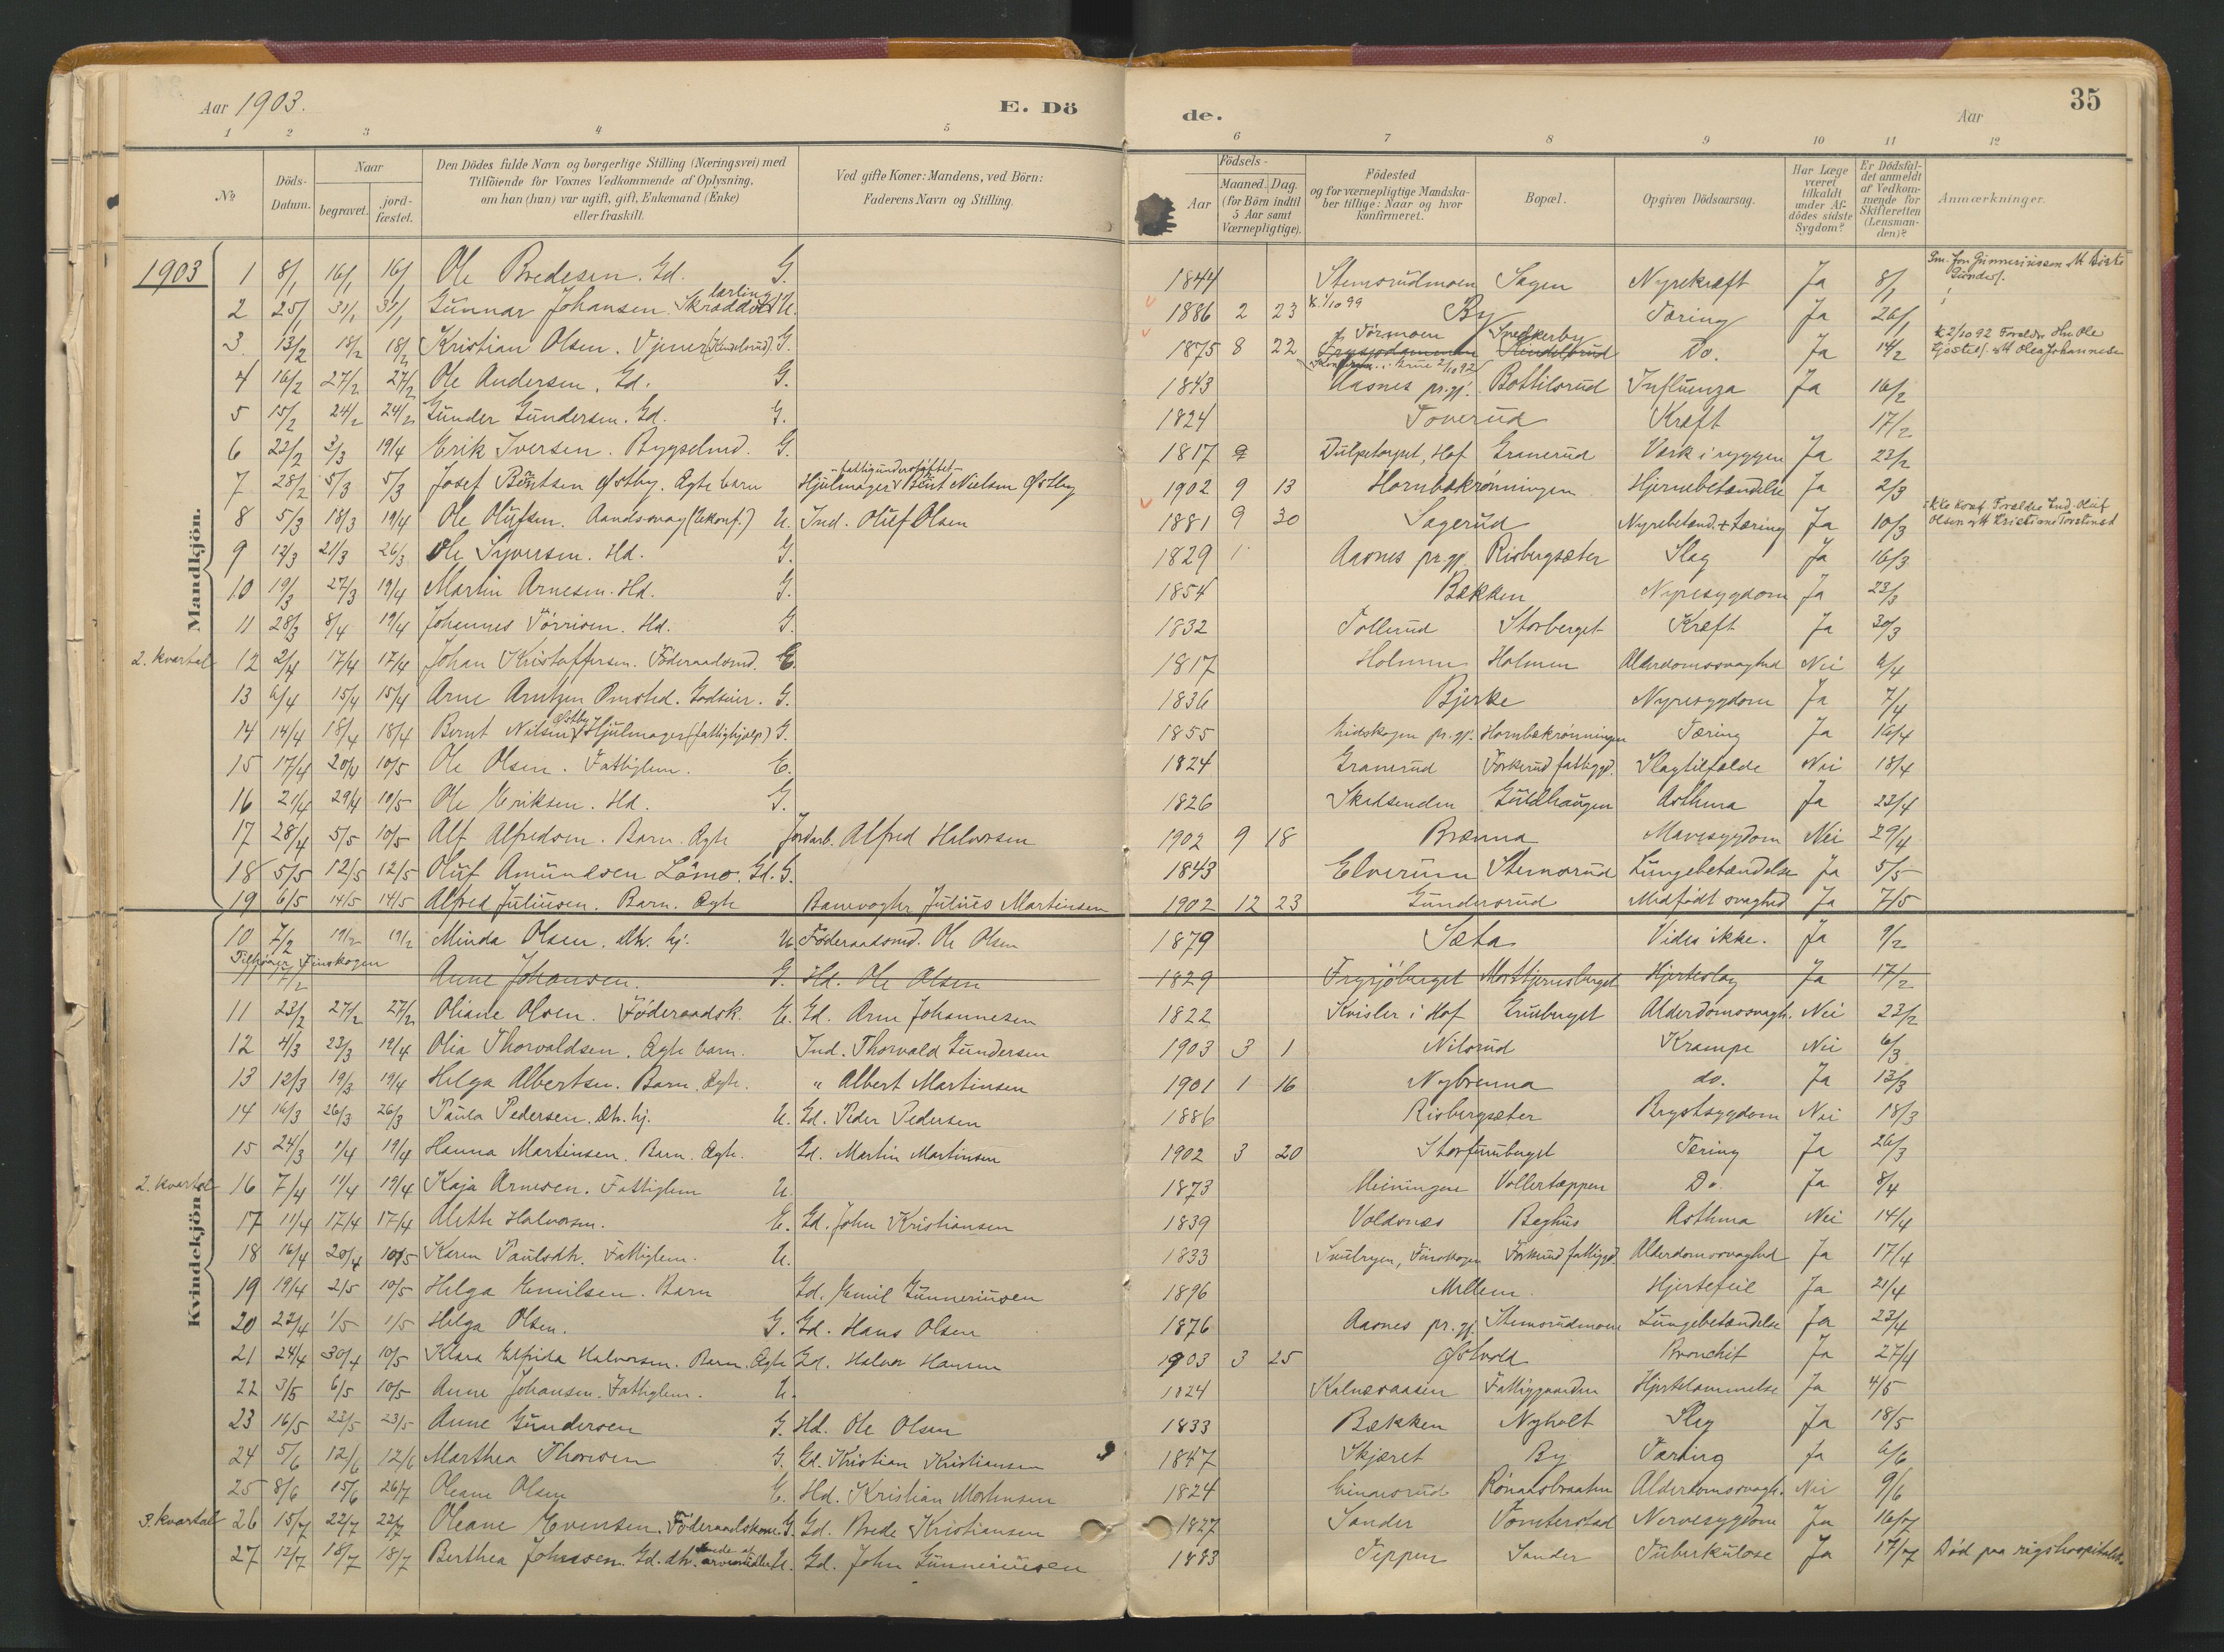 Aar 1903. E. Dö de. Aar 35
1 2 3 4 5 6 7 8 9 10 11 12
No
Döds-Datum.
Naar
begravet.
jord-fæstet.
Den Dödes fulde Navn og borgerlige Stilling (Næringsvei) med
Tilföiende for Voxnes Vedkommende af Oplysning,
om han (hun) var ugift, gift, Enkemand (Enke)
eller fraskilt.
Ved gifte Koner: Mandens, ved Börn:
Faderens Navn og Stilling.
Födsels-
Aar
Maaned. Dag.
(for Börn indtil
5 Aar samt
Værnepligtige).
Födested
og for værnepligtige Mandska-
ber tillige: Naar og hvor
konfirmeret.
Bopæl.
Opgiven Dödsaarsag.
Har Læge
været
tilkaldt
under Af-
dödes sidste
Sygdom?
Er Dödsfal-
det anmeldt
af Vedkom-
mende for
Skifteretten
(Lensman-
den)?
Anmærkninger.
Mandkjön.
1903 1 8/1 16/1 16/1 Ole Bredesen. Gd. G. 1844 Stemsrudmoen Sagen Nyrekræft Ja 8/1
2 25/1 31/1 31/1 Gunnar Johansen Skrædderlærling U. 1886 2 23 k. 1/10 99 By Tæring Ja 26/1
3 13/2 18/2 18/2 Kristian Olsen. Tjener G. 1875 8 22 Törmoen Snedkerby Do. Ja 14/2 k 2/10 92 Forældre Hm Ole
4 16/2 27/2 27/2 Ole Andersen. Gd. G. 1843 Aasnes pr.gj. Bottilsrud Influenza Ja 16/2
5 15/2 24/2 24/2 Gunder Gundersen. Gd. G. 1824 Toverud Kræft 17/2
6 22/2 3/3 19/4 Erik Iversen. Bygselmd. G. 1817 Dulpetorpet, Hof Granerud Værk i ryggen Ja 22/2
7 28/2 5/3 5/3 Josef Berntsen Østby. Ægte barn Hjulmager -fattigunderstöttet- Bernt Nielsen Østby 1902 9 13 Hornbækrönningen Hjernebetændelse Ja 2/3
8 5/3 18/3 19/4 Ole Olufsen. Aandssvag (Ukonf.) U. Ind. Oluf Olsen 1881 9 30 Sagerud Nyrebetænd. + Tæring Ja 10/3 ikke konf. Forældre Ind. Oluf Olsen
9 13/3 21/3 26/3 Ole Syversen. Hd. G. 1829 Aasnes pr.gj. Risbergsæter Slag Ja 16/3
10 19/3 27/3 19/4 Martin Arnesen. Hd. G. 1854 Bækken Nyresygdom Ja 23/3
11 28/3 8/4 19/4 Johannes Törrisen. Hd. G. 1832 Tollerud Storberget Kræft Ja 30/3
2. kvartal 12 2/4 17/4 17/4 Johan Kristoffersen. Föderaadsmd. E. 1817 Holmen Holmen Alderdomssvaghed Nei 6/4
13 6/4 15/4 15/4 Arne Arntzen Omsted. Godseier. G. 1836 Bjerke Nyresygdom Ja 7/4
14 14/4 18/4 18/4 Bernt Nilsen Østby Hjulmager (fattighjælp) G. 1855 Eidskogen pr.gj. Hornbækrönningen Tæring Ja 16/4
15 17/4 20/4 10/5 Ole Olsen. Fattiglem. E. 1824 Granerud Forkerud fattiggd. Slagtilfælde Nei 18/4
16 21/4 29/4 10/5 Ole Eriksen. Hd. G. 1826 Skadsenden Guldhaugen Asthma Ja 22/4
17 28/4 5/5 10/5 Alf Alfredsen. Barn. Ægte Jordarb. Alfred Halvorsen 1902 9 18 Brænna Mavesygdom Nei 29/4
18 5/5 12/5 12/5 Oluf Amundsen Lömo. Gd. G. 1843 Elverum Stemsrud Lungebetændelse Ja 5/5
19 6/5 14/5 14/5 Alfred Juliussen. Barn. Ægte Banevogter Julius Martinsen 1902 12 23 Gundersrud Medfödt svaghed Ja 7/5
Kvindekjön
10 7/2 19/2 19/2 Minda Olsen. dtr. hj. U. Föderaadsmd. Ole Olsen 1879 Sæta Vides ikke. Ja 9/2
Tilhörer Finskogen
11 Anne Johansen. G. Hd. Ole Olsen 1829 Frysjöberget Hjerteslag Ja 17/2
11 23/2 27/2 27/2 Oliane Olsen. Föderaadsk. E. Gd. Arne Johannesen 1822 Kvisler i Hof Grueberget Alderdomssvagh. Nei 23/2
12 4/3 23/3 19/4 Olia Thorvaldsen. Ægte barn. Ind. Thorvald Gundersen 1903 3 1 Nilsrud Krampe Nei 6/3
13 12/3 19/3 19/4 Helga Albertsen. Barn. Ægte. " Albert Martinsen 1901 1 16 Nybrenna do. Ja 13/3
14 16/3 26/3 26/3 Paula Pedersen. Dtr. hj. U. Gd. Peder Pedersen 1886 Risbergsæter Brystsygdom Nei 18/3
15 24/3 1/4 19/4 Hanna Martinsen. Barn. Ægte. Gd. Martin Martinsen 1902 3 20 Storfuruberget Tæring Ja 26/3
2. kvartal 16 7/4 11/4 19/4 Kaja Arnesen. Fattiglem U. 1873 Heiningen Vollertæppen Do. Ja 8/4
17 11/4 17/4 17/4 Alette Halvorsen. E. Gd. John Kristiansen 1839 Voldsnes Baghus Asthma Nei 14/4
18 16/4 20/4 10/5 Karen Paulsdtr. Fattiglem. U. 1833 Finskogen Forkerud fattiggd. Alderdomssvaghed Ja 17/4
19 19/4 2/5 10/5 Helga Emilsen. Barn Gd. Emil Gunneriussen 1896 Mellem. Hjertefeil Ja 21/4
20 22/4 1/5 1/5 Helga Olsen. G. Gd. Hans Olsen 1876 Aasnes pr.gj. Stemsrudmoen Lungebetændelse Ja 23/4
21 24/4 30/4 10/5 Klara Elfrida Halvorsen. Barn. Ægte Gd. Halvor Hansen 1903 3 25 Østvold Bronchit Ja 27/4
22 3/5 6/5 10/5 Anne Johansen. Fattiglem. U. 1824 Kalnesaasen Fattiggaarden Hjertelammelse Ja 4/5
23 16/5 23/5 23/5 Anne Gundersen G. Hd. Ole Olsen 1833 Bækken Nyholt Slag Ja 18/5
24 5/6 12/6 12/6 Marthea Thoresen G. Gd. Kristian Kristiansen 1847 Skjæret By Tæring Ja 6/6
25 8/6 15/6 26/7 Oleane Olsen E. Hd. Kristian Mortensen 1824 Einarsrud Rönaasbraaten Alderdomssvagh. Nei 9/6
3. kvartal 26 15/7 22/7 22/7 Oleane Evensen. Föderaadskone. G. Gd. Brede Kristiansen 1827 Sander Tomterstad Nervesygdom Ja 16/7
27 12/7 18/7 18/7 Berthea Johnsen. Gd. dtr. U. Gd. John Gunneriussen 1883 Teppen Sander Tuberkulose Ja 17/7 Död paa rigshospitalet.